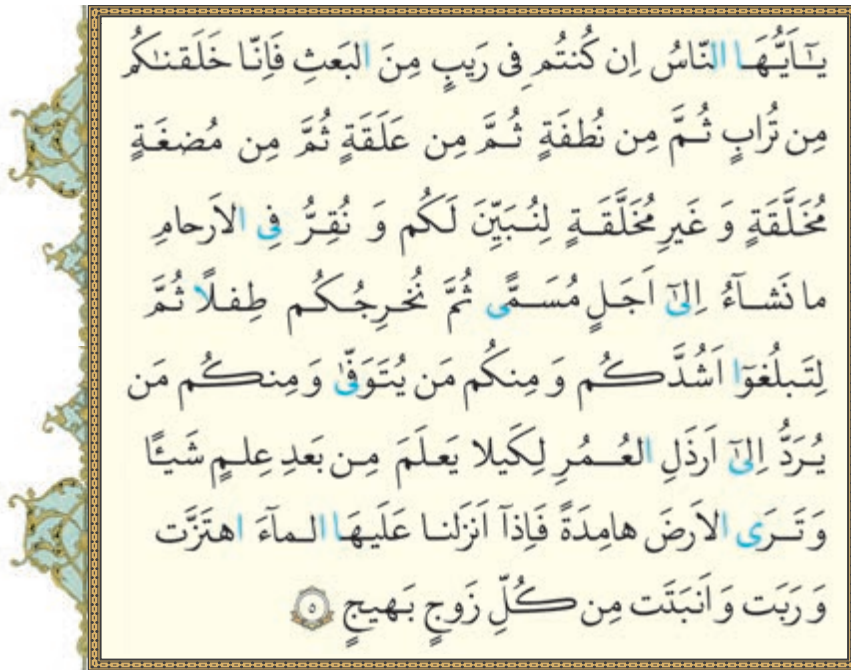 يـٰٓاَيُّهَـا النّاسُ اِن كُنتُم فى رَيبٍ مِنَ البَعثِ فَاِنّا خَلَقنـٰكُم
مِن تُرابٍ ثُـمَّ مِن نُطفَةٍ ثُـمَّ مِن عَلَقَةٍ ثُمَّ مِن مُضغَةٍ
مُخَلَّقَةٍ وَ غَيرِ مُخَلَّقَـةٍ لِنُـبَيِّنَ لَكُم وَ نُقِرُّ فِى الاَرحامِ
ما نَشـآءُ اِلىٰٓ اَجَلٍ مُسَـمًّى ثُمَّ نُخـرِجُـكُم طِفـلًا ثُـمَّ
لِتَـبلُغوٓا اَشُدَّكُم وَ مِنكُم مَن يُتَوَفّىٰ وَ مِنكُم مَن
يُـرَدُّ اِلىٰٓ اَرذَلِ العُـمُرِ لِكَيلا يَعلَمَ مِـن بَعدِ عِلـمٍ شَيـًٔا
وَ تَـرَى الاَرضَ هامِدَةً فَاِذآ اَنزَلنـا عَلَيهَـا الـمآءَ اهتَزَّت
وَ رَبَت وَ اَنبَتَت مِن كُلِّ زَوجٍ بَهيجٍ ۵